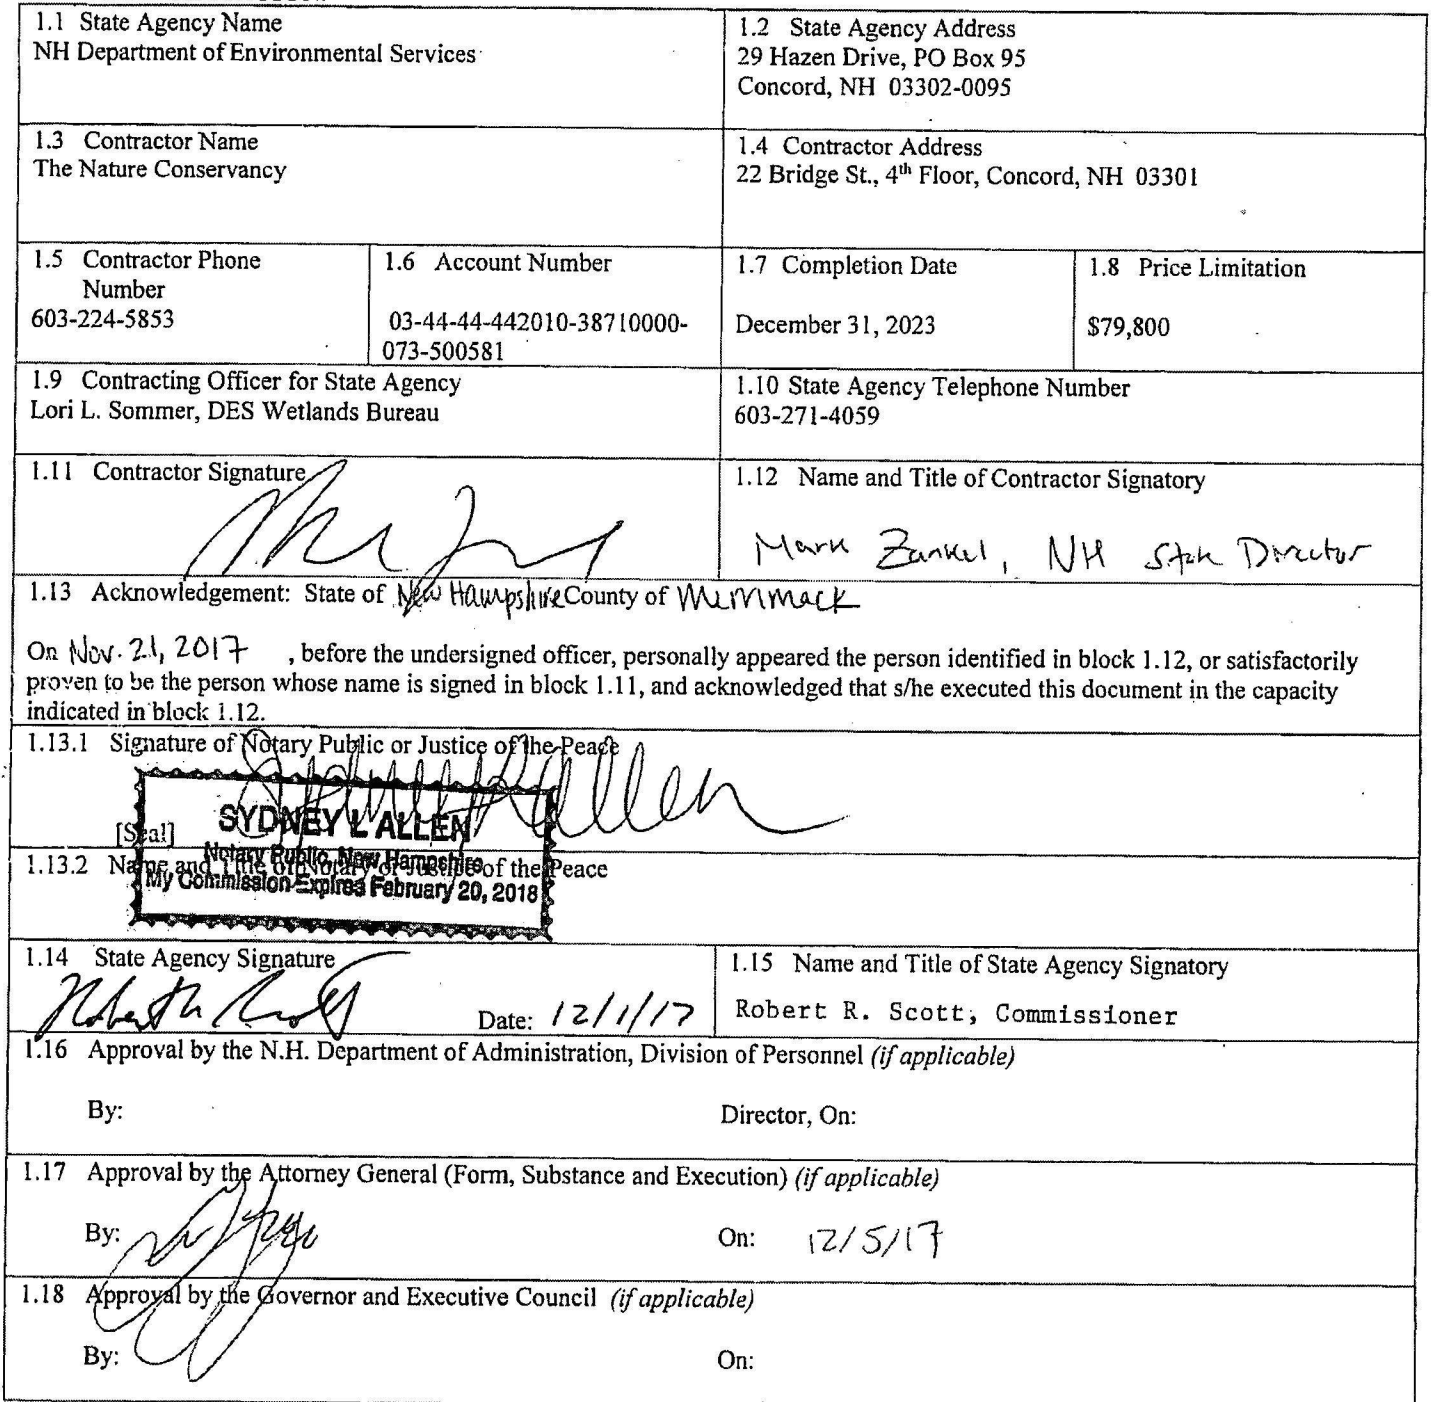 1.1 State Agency Name
NH Department of Environmental Services
1.2 State Agency Address
29 Hazen Drive, PO Box 95
Concord, NH 03302-0095
1.3 Contractor Name
The Nature Conservancy
1.4 Contractor Address
22 Bridge St., 4th Floor, Concord, NH 03301
1.5 Contractor Phone
Number
603-224-5853
1.6 Account Number
03-44-44-442010-38710000-
073-500581
1.7 Completion Date
December 31, 2023
1.8 Price Limitation
$79,800
1.9 Contracting Officer for State Agency
Lori L. Sommer, DES Wetlands Bureau
1.10 State Agency Telephone Number
603-271-4059
1.11 Contractor Signature
1.12 Name and Title of Contractor Signatory
Mark Zankel, NH State Director
1.13 Acknowledgement: State of New Hampshire County of Merrimack
On Nov. 21, 2017 , before the undersigned officer, personally appeared the person identified in block 1.12, or satisfactorily
proven to be the person whose name is signed in block 1.11, and acknowledged that s/he executed this document in the capacity
indicated in block 1.12.
1.13.1 Signature of Notary Public or Justice of the Peace
[Seal]
SYDNEY L ALLEN
Notary Public, New Hampshire
My Commission Expires February 20, 2018
1.13.2 Name and Title of Notary or Justice of the Peace
1.14 State Agency Signature
Date: 12/1/17
1.15 Name and Title of State Agency Signatory
Robert R. Scott, Commissioner
1.16 Approval by the N.H. Department of Administration, Division of Personnel (if applicable)
By:
Director, On:
1.17 Approval by the Attorney General (Form, Substance and Execution) (if applicable)
By:
On: 12/5/17
1.18 Approval by the Governor and Executive Council (if applicable)
By:
On: